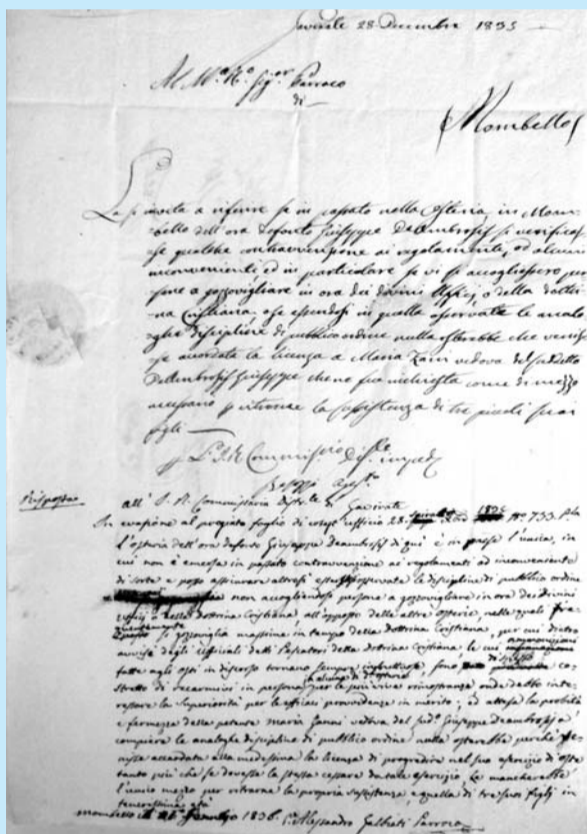 Gavirate 28 Decembre 1835
Al M.to R.do Sig.or Parroco
di
Mombello
La si invita a riferire se in passato nella Osteria in Mom-
bello dell'ora defonto Giuseppe DeAmbrosis si verificas-
se qualche contravvenzione ai regolamenti, od alcun
inconveniente, ed in particolare se vi si accogliessero per
sone a gozzovigliare in ora dei divini Uffici, o della dottri-
na Cristiana, che essendosi in quella osservate le analo
ghe discipline di pubblico ordine nulla osterebbe che venis
se accordata la licenza a Maria Zani vedova del suddetto
DeAmbrosis Giuseppe che ne fece richiesta come di mezzo
necessario p ritrarne la sussistenza di tre piccoli suoi
figli
L'I. R. Commissario Dist.le
Risposta
all' I. R. Commissaria Distr.le di Gavirate
In evasione al pregiato foglio di cotesto ufficio 28 1835 N.o 733
L'osteria dell'ora defonto Giuseppe Deambrosis di qui è in paese l'unica, in
cui non è emersa in passato contravvenzione ai regolamenti od inconveniente
di sorta e posso assicurare altresì osservate le discipline di pubblico ordine
non accogliendosi persone a gozzovigliare in ora dei divini
uffici o della dottrina Cristiana, all'opposto delle altre osterie, nelle quali
si gozzoviglia massime in tempo della Dottrina Cristiana, per cui dietro
avvisi degli ufficiali detti Pescatori della dottrina Cristiana, le cui
fatte agli osti in discorso tornano sempre infruttuose, sono co
stretto di recarmi in persona per le più vive rimostranze onde debbo inte-
ressare la Superiorità per le efficaci providenze in merito; ed attesa la probità
e fermezza della petente Maria Zanni vedova del sud.o Giuseppe Deambrosis a
compiere le analoghe discipline di pubblico ordine, nulla osterebbe perchè ve
nisse accordata alla medesima la licenza di progredire nel suo esercizio di oste
tanto più che se dovesse la stessa cessare da tale esercizio Le mancherebbe
l'unico mezzo per ritrarne la propria sussistenza, e quella di tre suoi figli in
tenerissima età
Mombello 1836. P. Alessandro Galbiati Parroco